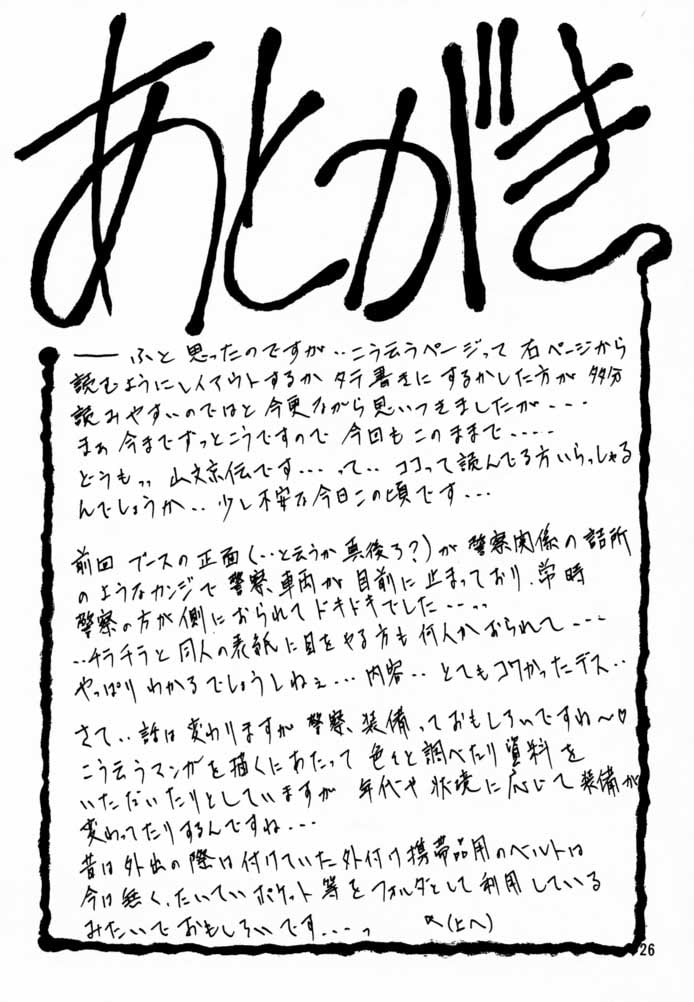 あとがき
―― ふと思ったのですが‥こう云うページって右ページから
読むようにレイアウトするかタテ書きにするかした方が多分
読みやすいのではと今更ながら思いつきましたが・・・
まぁ今までずっとこうですので今回もこのままで・・・・・
どうもっっ山文京伝です・・・って‥ココって読んでる方いらっしゃる
んでしょうか‥少し不安な今日この頃です・・・
前回ブースの正面(‥と云うか真後ろ?)が警察関係の詰所
のようなカンジで警察車両が目前に止まっており、常時
警察の方が側におられてドキドキでした・・・っっ
‥チラチラと同人の表紙に目をやる方も何人かおられて・・・
やっぱりわかるでしょうしねぇ・・・内容‥とてもコワかったデス‥
さて‥話は変わりますが警察装備っておもしろいですね〜♡
こう云うマンガを描くにあたって色々と調べたり資料を
いただいたりとしていますが年代や状境に応じて装備が
変わってたりするんですね・・・
昔は外出の際は付けていた外付け携帯品用のベルトは
今は無く、たいていポケット等をフォルダとして利用している
みたいでおもしろいです・・・・っ
(上へ)
26